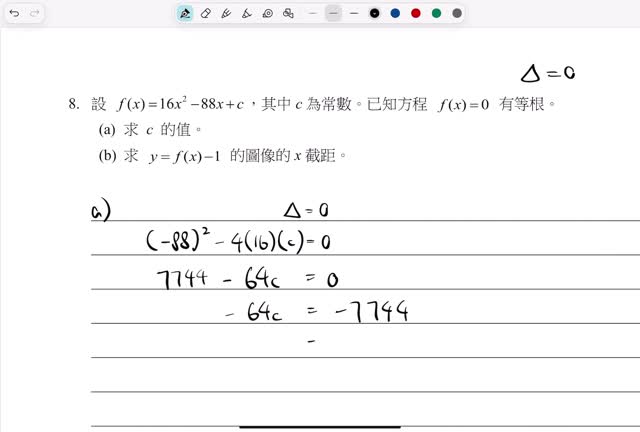 Δ = 0
8. 設 f(x)=16x²−88x+c，其中 c 為常數。已知方程 f(x)=0 有等根。
(a) 求 c 的值。
(b) 求 y=f(x)−1 的圖像的 x 截距。
a) Δ = 0
(-88)² - 4(16)(c) = 0
7744 - 64c = 0
- 64c = -7744
=